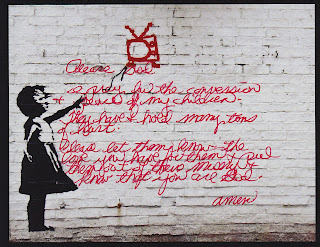 Please God
I pray for the conversion
& peace of my children.
They have & hold many tons
of hurt.
Please let them know the
love you have for them & pull
them out of their misery &
know that you are God.
amen